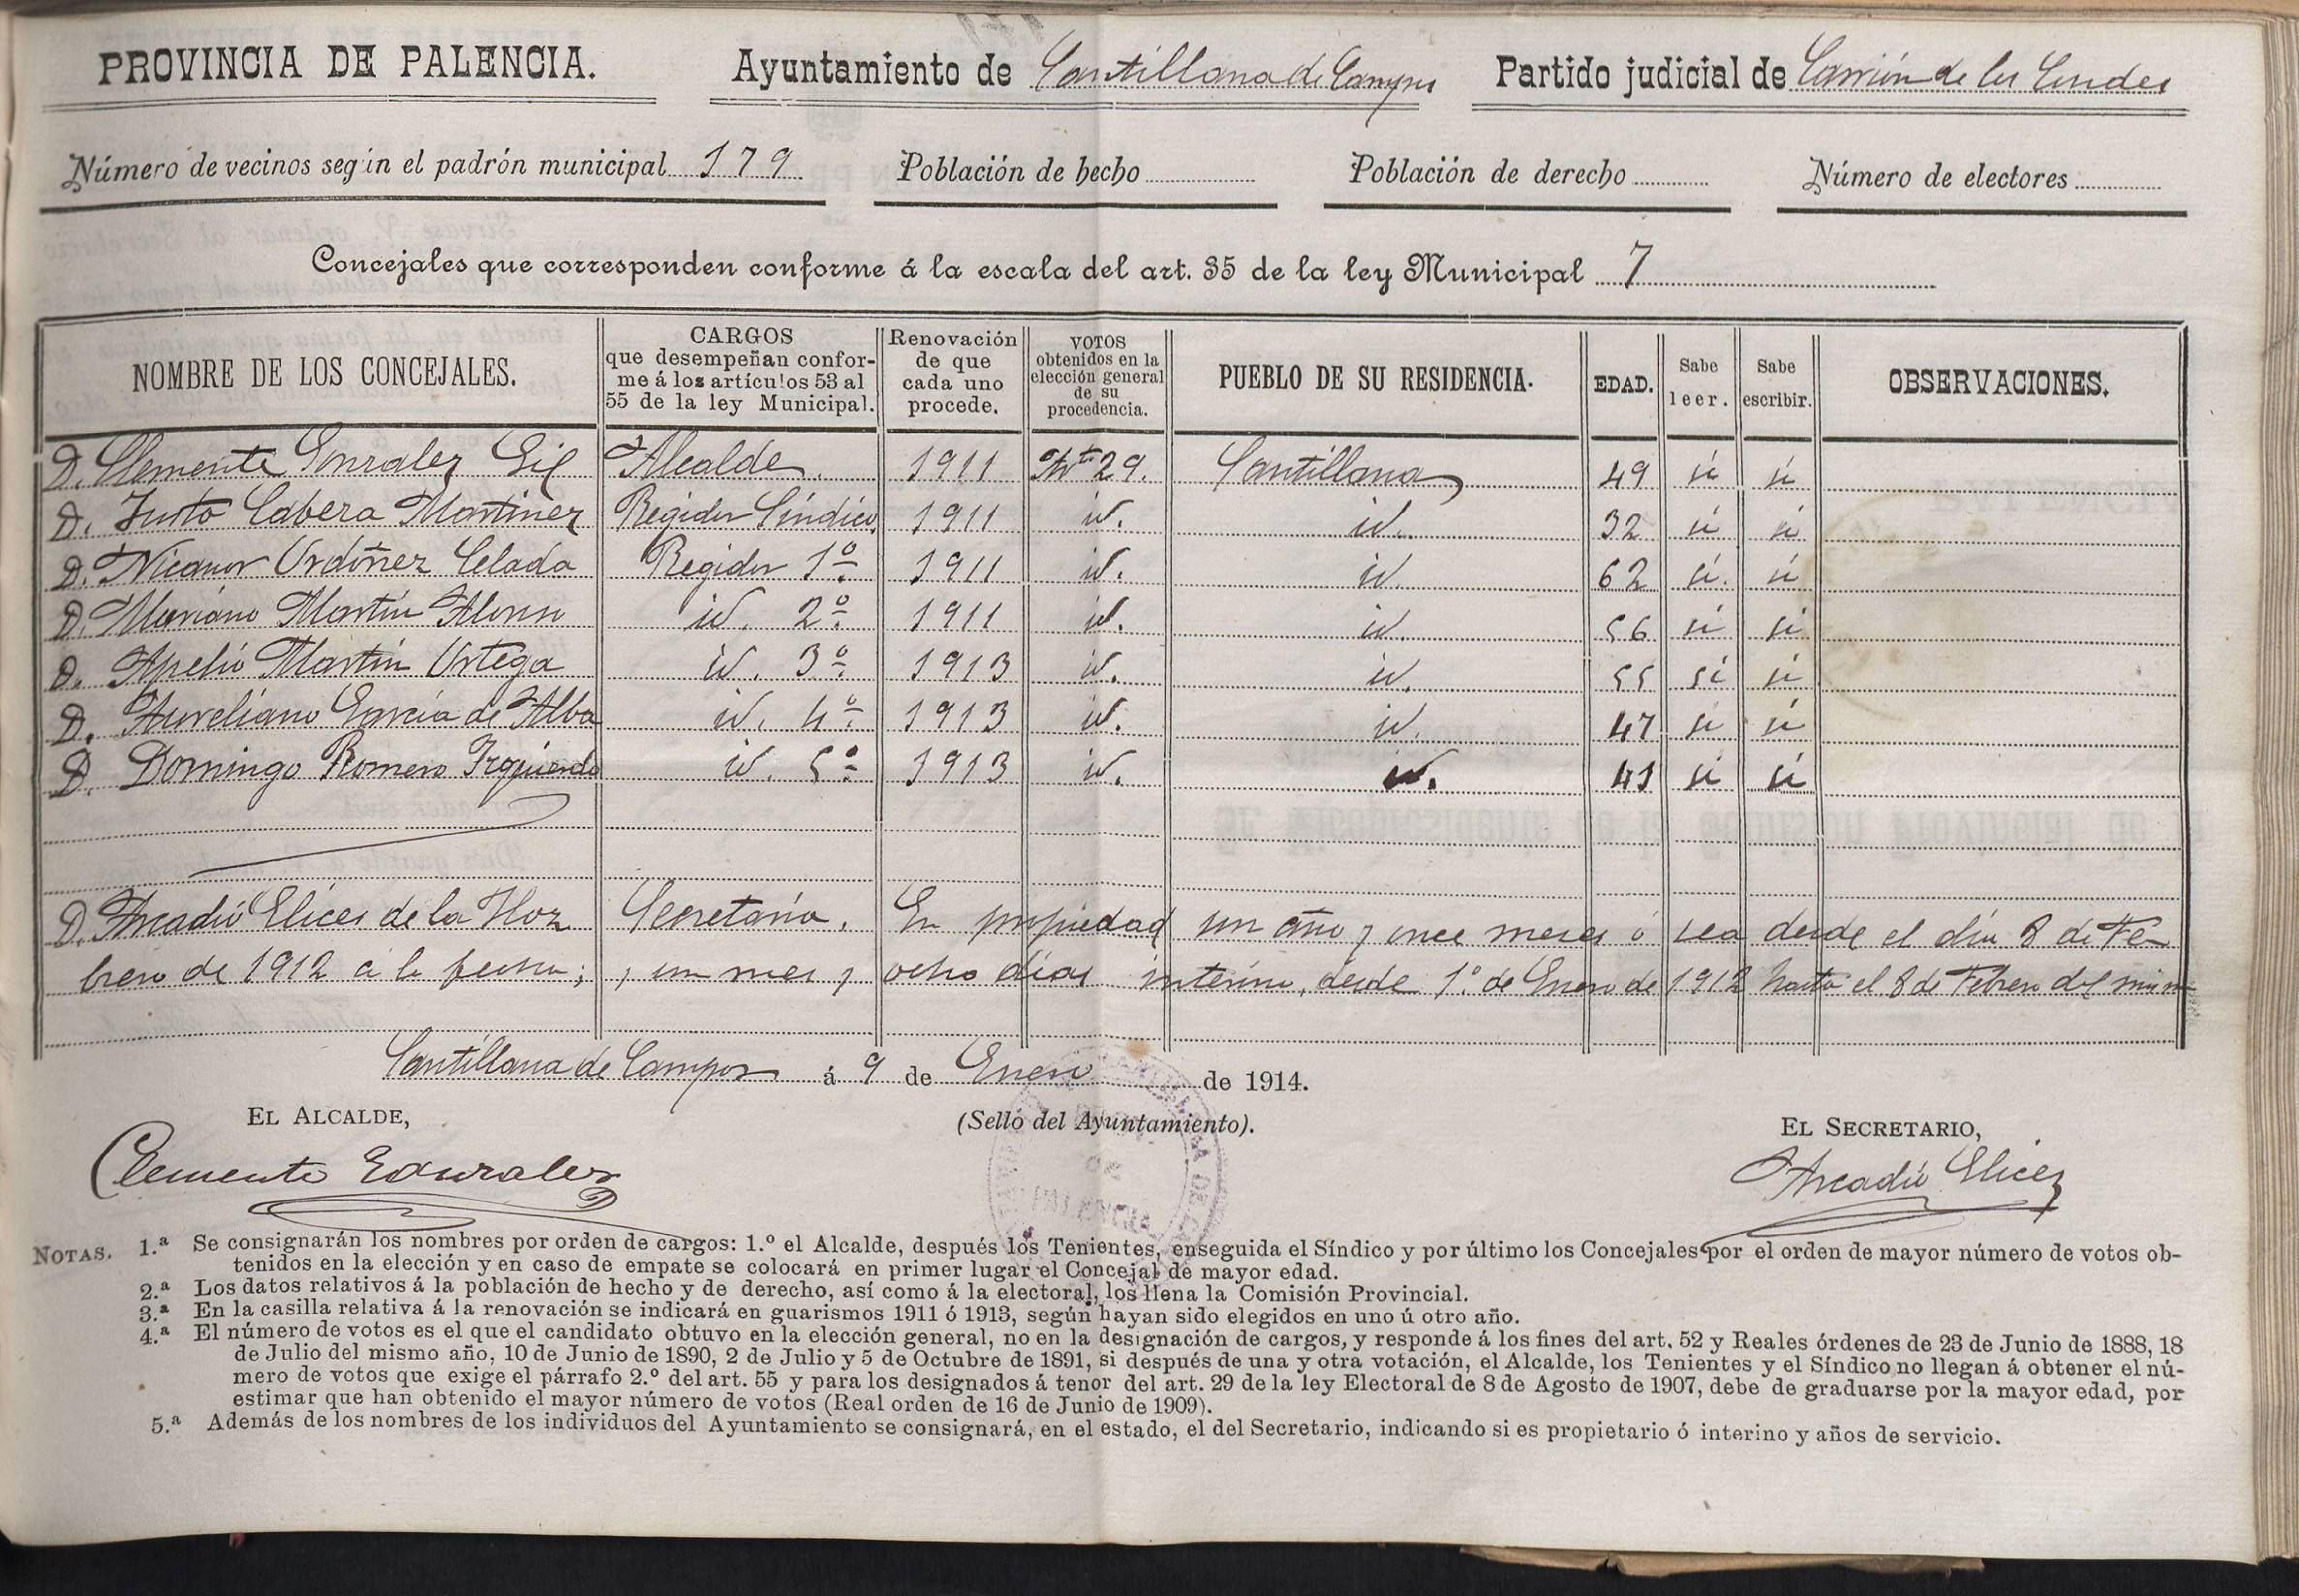 PROVINCIA DE PALENCIA. Ayuntamiento de Santillana de Campos Partido judicial de Carrión de los Condes
Número de vecinos según el padrón municipal 179 Población de hecho Población de derecho Número de electores
Concejales que corresponden conforme á la escala del art. 35 de la ley Municipal 7
NOMBRE DE LOS CONCEJALES. CARGOS que desempeñan conforme á los artículos 53 al 55 de la ley Municipal. Renovación de que cada uno procede. VOTOS obtenidos en la elección general de su procedencia. PUEBLO DE SU RESIDENCIA. EDAD. Sabe leer. Sabe escribir. OBSERVACIONES.
D. Clemente Gonzalez Gil Alcalde. 1911 Artº 29. Santillana 49 si si
D. Justo Cabera Martinez Regidor Síndico. 1911 id. id. 32 si si
D. Nicanor Ordóñez Celada Regidor 1º 1911 id. id. 62 si. si
D. Mariano Martín Alonso id. 2º 1911 id. id. 56 si si
D. Apelio Martín Ortega id. 3º 1913 id. id. 55 si si
D. Aureliano García de Alba id. 4º 1913 id. id. 47 si si
D. Domingo Romero Izquierdo id. 5º 1913 id. id. 41 si si
D. Arcadio Elices de la Hoz Secretario. En propiedad un año y once meses ó sea desde el día 8 de Fe
brero de 1912 á la fecha; y un mes y ocho días interino, desde 1º de Enero de 1912 hasta el 8 de Febrero del mismo
Santillana de Campos á 9 de Enero de 1914.
EL ALCALDE, (Sello del Ayuntamiento). EL SECRETARIO,
Clemente Gonzalez Arcadio Elices
NOTAS. 1.ª Se consignarán los nombres por orden de cargos: 1.º el Alcalde, después los Tenientes, enseguida el Síndico y por último los Concejales por el orden de mayor número de votos ob-
tenidos en la elección y en caso de empate se colocará en primer lugar el Concejal de mayor edad.
2.ª Los datos relativos á la población de hecho y de derecho, así como á la electoral, los llena la Comisión Provincial.
3.ª En la casilla relativa á la renovación se indicará en guarismos 1911 ó 1913, según hayan sido elegidos en uno ú otro año.
4.ª El número de votos es el que el candidato obtuvo en la elección general, no en la designación de cargos, y responde á los fines del art. 52 y Reales órdenes de 23 de Junio de 1888, 18
de Julio del mismo año, 10 de Junio de 1890, 2 de Julio y 5 de Octubre de 1891, si después de una y otra votación, el Alcalde, los Tenientes y el Síndico no llegan á obtener el nú-
mero de votos que exige el párrafo 2.º del art. 55 y para los designados á tenor del art. 29 de la ley Electoral de 8 de Agosto de 1907, debe de graduarse por la mayor edad, por
estimar que han obtenido el mayor número de votos (Real orden de 16 de Junio de 1909).
5.ª Además de los nombres de los individuos del Ayuntamiento se consignará, en el estado, el del Secretario, indicando si es propietario ó interino y años de servicio.